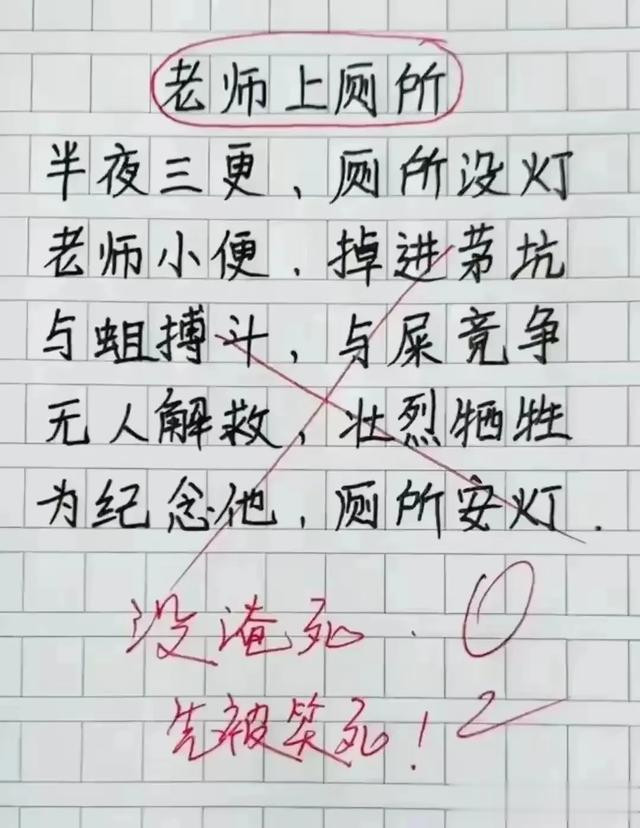 老师上厕所
半夜三更、厕所没灯
老师小便.掉进茅坑
与蛆搏斗,与屎竞争
无人解救,壮烈牺牲
为纪念他,厕所安灯.
没淹死.0
先被笑死!